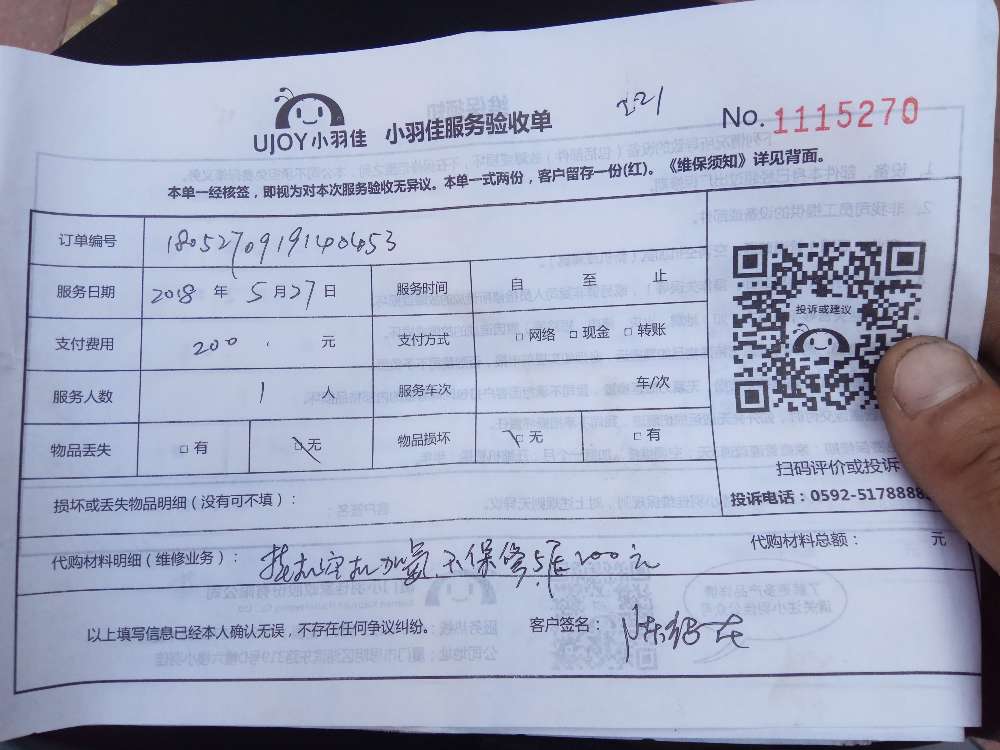 221
UJOY小羽佳 小羽佳服务验收单 No.1115270
本单一经核签，即视为对本次服务验收无异议。本单一式两份，客户留存一份(红)。《维保须知》详见背面。
订单编号 18052709191404053
服务日期 2018 年 5 月 27 日 服务时间 自 至 止
支付费用 200 . 元 支付方式 □ 网络 □ 现金 □ 转账
服务人数 1 人 服务车次 车/次
物品丢失 □ 有 □ 无 物品损坏 □ 无 □ 有
投诉或建议
扫码评价或投诉
投诉电话：0592-5178888
损坏或丢失物品明细（没有可不填）：
代购材料明细（维修业务）： 挂机空机加氟 不保修 200元 代购材料总额： 元
以上填写信息已经本人确认无误，不存在任何争议纠纷。 客户签名：